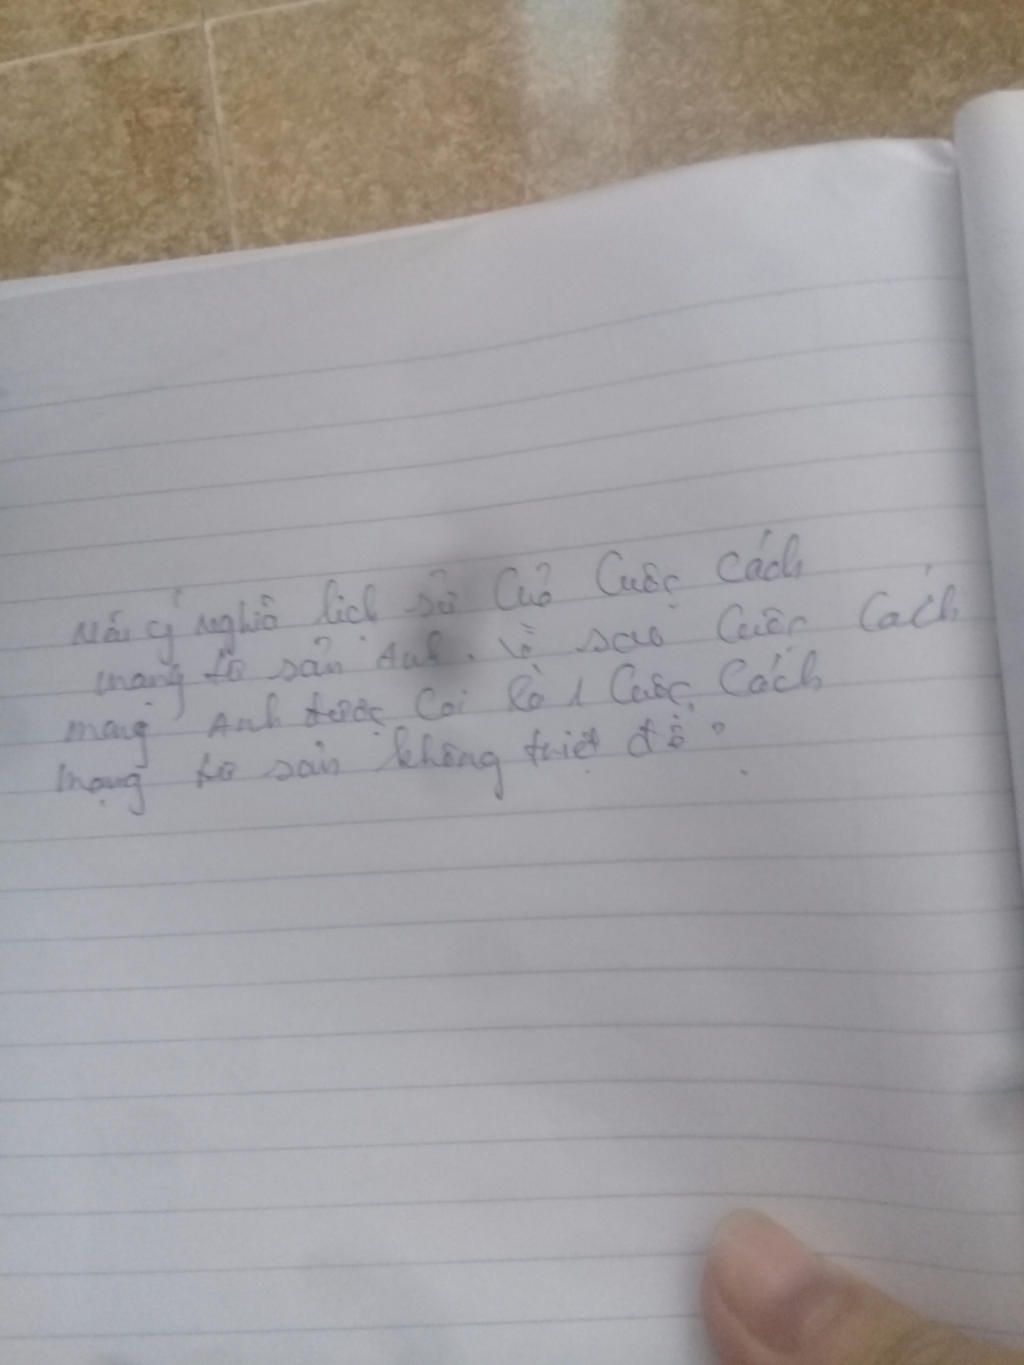 Nêu ý nghĩa lịch sử Của Cuộc Cách
mạng tư sản Anh. Vì sao Cuộc Cách
mạng Anh được Coi là 1 Cuộc Cách
mạng tư sản không triệt để?